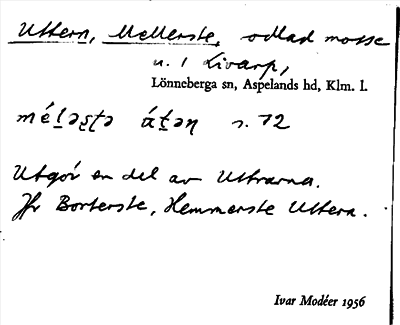 Uttern, Mellerste, odlad mosse
u. 1 Livarp,
Lönneberga sn, Aspelands hd, Klm. l.
s. 72
Utgör en del av Uttrarna.
Jfr Borterste, Hemmerste Uttern.
Ivar Modéer 1956